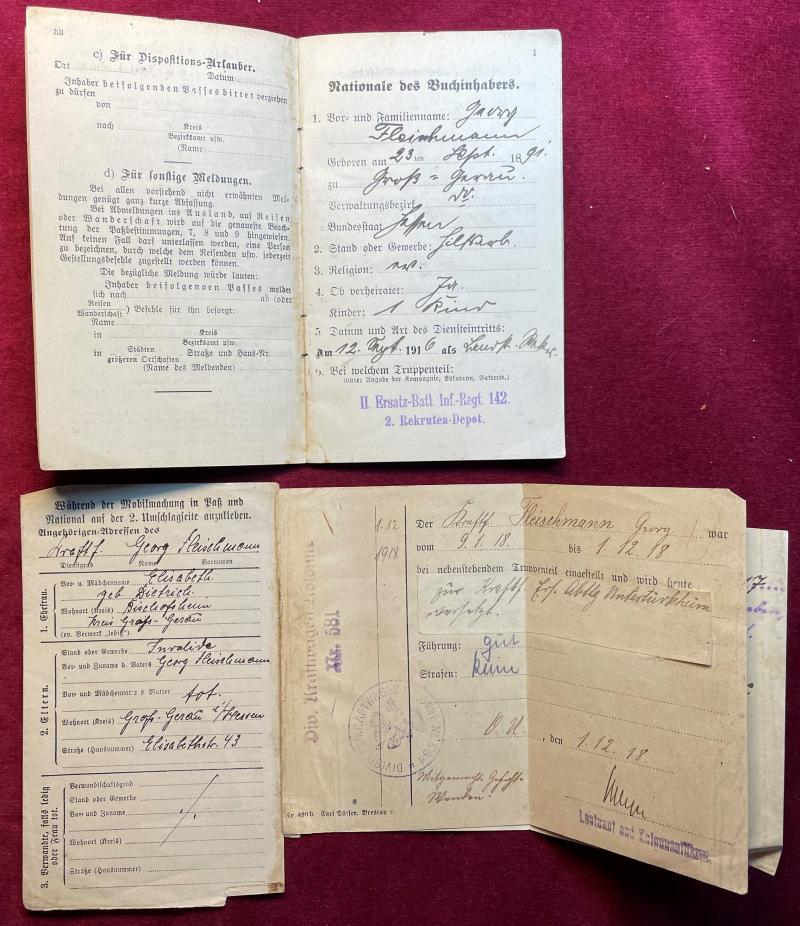 XII
c) Für Dispositions-Urlauber.
Ort Datum
Inhaber beifolgenden Passes bittet verziehen
zu dürfen
von
nach Kreis
Bezirksamt usw.
(Name)
d) Für sonstige Meldungen.
Bei allen vorstehend nicht erwähnten Mel-
dungen genügt ganz kurze Abfassung.
Bei Abmeldungen ins Ausland, auf Reisen
oder Wanderschaft wird auf die genaueste Beach-
tung der Paßbestimmungen, 7, 8 und 9 hingewiesen.
Auf keinen Fall darf unterlassen werden, eine Person
zu bezeichnen, durch welche dem Reisenden usw. jederzeit
Gestellungsbefehle zugestellt werden können.
Die bezügliche Meldung würde lauten:
Inhaber beifolgenden Passes meldet
sich nach ab (oder
Reisen
Wanderschaft ) Befehle für ihn besorgt:
Name
in Kreis
Bezirksamt usw.
in Städten Straße und Haus-Nr.
größeren Ortschaften
(Name des Meldenden)
1
Nationale des Buchinhabers.
1. Vor- und Familienname: Georg
Fleischmann
Geboren am 23 ten Sept. 1891.
zu Groß-Gerau.
Verwaltungsbezirk do.
Bundesstaat Hessen
2. Stand oder Gewerbe: Hilfsarb.
3. Religion: ev.
4. Ob verheiratet: Ja.
Kinder: 1 Kind
5. Datum und Art des Diensteintritts:
Am 12. Sept. 1916 als Landst.
6. Bei welchem Truppenteil:
(unter Angabe der Kompagnie, Eskadron, Batterie.)
II. Ersatz-Batl Inf.-Regt. 142.
2. Rekruten-Depot.
Während der Mobilmachung in Paß und
National auf der 2. Umschlagseite anzukleben.
Angehörigen-Adressen des
Kraftf. Georg Fleischmann
Dienstgrad Name Vornamen
1. Ehefrau.
Vor- u. Mädchenname Elisabeth
geb Dietrich
Wohnort (Kreis) Bischofsheim
Kreis Groß-Gerau
(ev. Vermerk „ledig")
2. Eltern.
Stand oder Gewerbe Invalide
Vor- und Zuname d. Vaters Georg Fleischmann
Vor- und Mädchenname d. Mutter tot.
Wohnort (Kreis) Groß-Gerau i/Hessen
Straße (Hausnummer) Elisabethstr. 43
3. Verwandte, falls ledig
oder Frau tot.
Verwandtschaftsgrad
Stand oder Gewerbe
Vor- und Zuname
Wohnort (Kreis)
Straße (Hausnummer)
Div. Kraftwagen-Kolonne
Nr. 581
1.12
1918
Der Kraftf. Fleischmann Georg war
vom 9.1.18. bis 1.12.18
bei nebenstehendem Truppenteil eingestellt und wird heute
zur Kraftf. Ers. Abtlg Untertürkheim
versetzt.
Führung: gut
Strafen: keine
O. U. , den 1.12.18
Mitgemachte Gefechte
Wenden!
Leutnant und Kolonnenführer
Nr. 490b. Carl Dülfer, Breslau